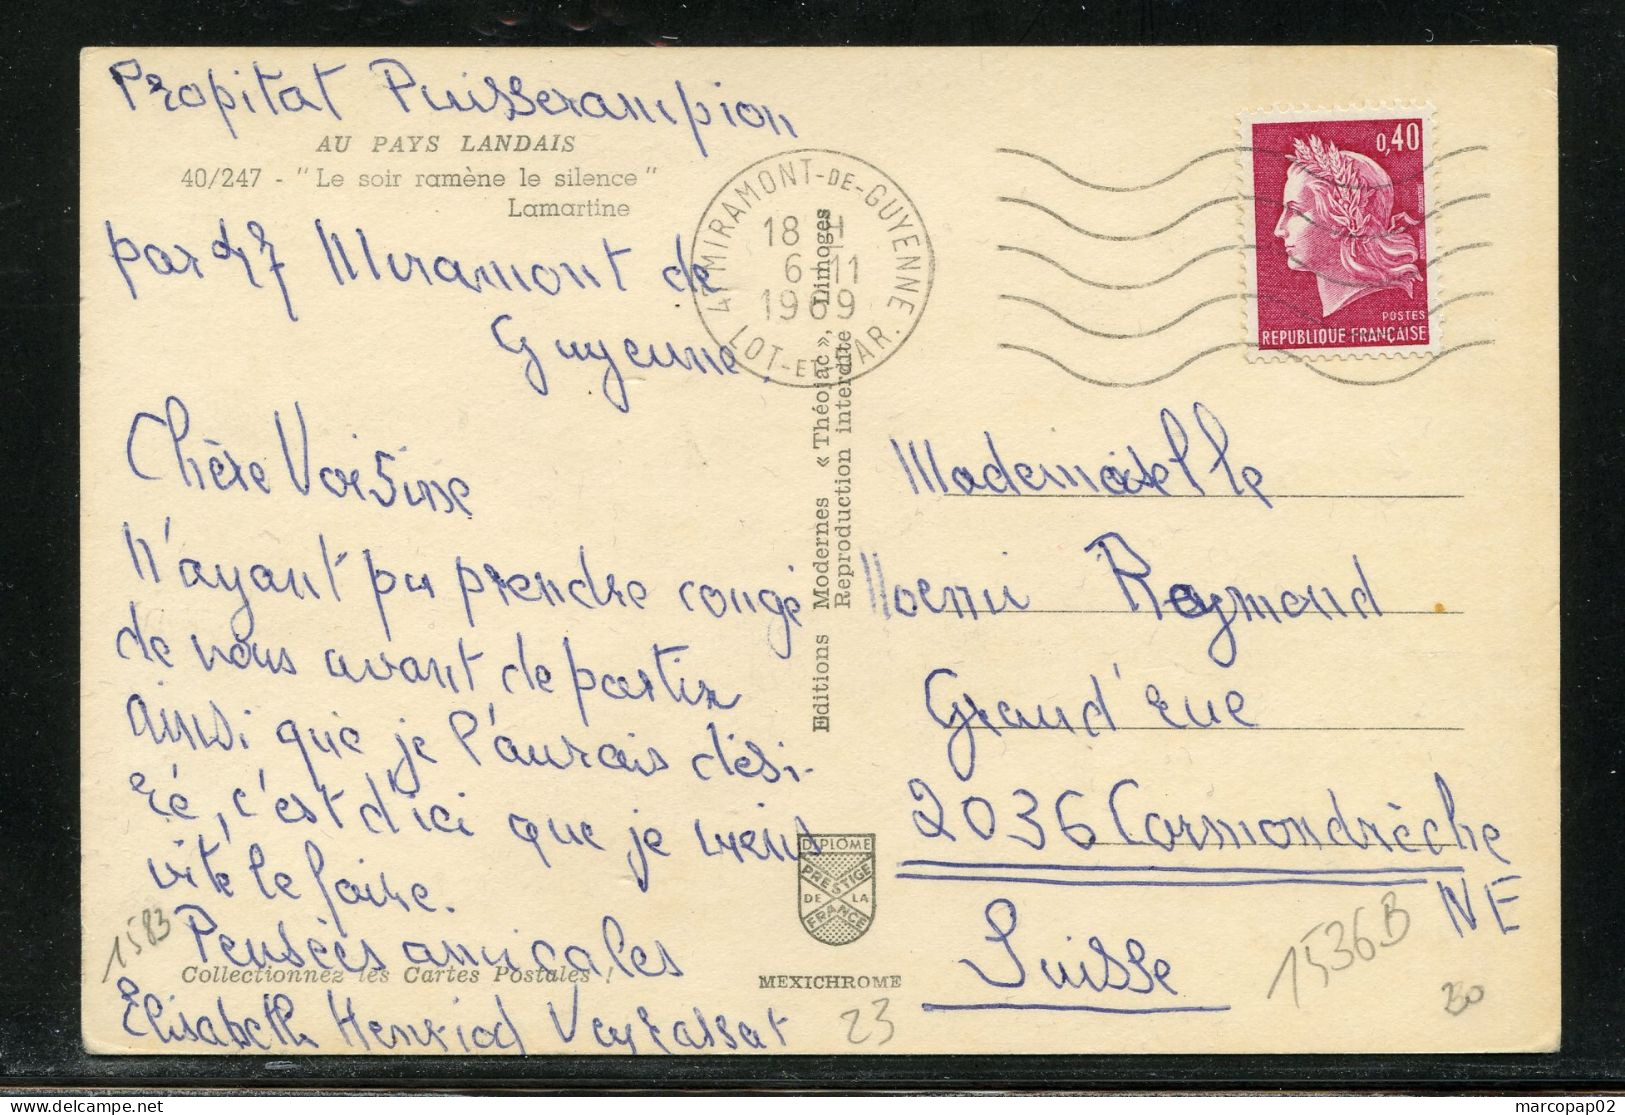 Propitat Puisserampion
AU PAYS LANDAIS
40/247 - "Le soir ramène le silence"
Lamartine
par 47 Miramont de
Guyenne.
Chère Voisine
N'ayant pu prendre congé
de vous avant de partir
ainsi que je l'aurais dési-
ré, c'est d'ici que je viens
vite le faire.
Pensées amicales
Collectionnez les Cartes Postales !
Elisabeth Henriod Veyrassat
1583
47 MIRAMONT-DE-GUYENNE
18 H
6-11
1969
LOT-ET-GAR.
Editions Modernes « Théojac », Limoges
Reproduction interdite
DIPLOME
PRESTIGE
DE LA
FRANCE
MEXICHROME
23
0,40
POSTES
REPUBLIQUE FRANÇAISE
Mademoiselle
Noemi Raymond
Grand'rue
2036 Cormondrèche
NE
Suisse
1536B
marcopap02